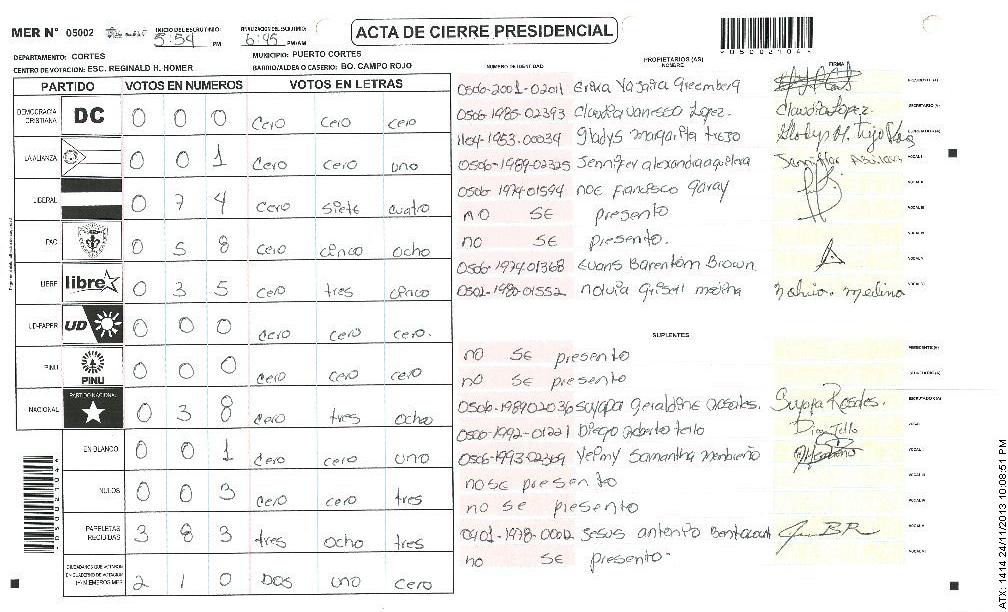 MER N° 05002 INICIO DEL ESCRUTINIO: 5:54 PM FINALIZACION DEL ESCRUTINIO: 6:45 PM/AM
ACTA DE CIERRE PRESIDENCIAL
DEPARTAMENTO: CORTES MUNICIPIO: PUERTO CORTES
CENTRO DE VOTACION: ESC. REGINALD H. HOMER BARRIO/ALDEA O CASERIO: BO. CAMPO ROJO
PARTIDO VOTOS EN NUMEROS VOTOS EN LETRAS
DEMOCRACIA CRISTIANA DC 0 0 0 Cero cero cero
LA ALIANZA 0 0 1 Cero cero uno
LIBERAL 0 7 4 Cero Siete cuatro
PAC 0 5 8 Cero cinco ocho
LIBRE libre 0 3 5 Cero tres cinco
UD-FAPER UD 0 0 0 Cero cero cero.
PINU PINU 0 0 0 Cero cero cero
NACIONAL PARTIDO NACIONAL 0 3 8 Cero tres ocho
EN BLANCO 0 0 1 Cero cero uno
NULOS 0 0 3 Cero cero tres
PAPELETAS RECIBIDAS 3 8 3 tres ocho tres
CIUDADANOS QUE VOTARON 2 1 0 Dos uno cero
NUMERO DE IDENTIDAD PROPIETARIOS (AS) NOMBRE FIRMA
0506-2001-02011 Erika Yajaira Greemberg
0506-1985-02393 Claudia Vanessa Lopez. Claudia Lopez.
1104-1953-00034 Gladys Margarita Trejo
0506-1989-02325 Jennifer alexandra aguilera
0506-1974-01594 noe Francisco Garay
no SE presento
no SE presento.
0506-1974-01368 Evans Barentom Brown
0502-1980-01552 nolvia Grisel medina nolvia medina
SUPLENTES
no SE presento
no SE presento
0506-1989-02036 Suyapa Geraldine Rosales. Suyapa Rosales.
0506-1992-01221 Diego Roberto Tello Diego Tello
0506-1993-02369 Yelmy Samantha Membreño
no SE presento
no se presento
0401-1978-0002 Jesus antonio
no SE presento.
*05002104*
ATX: 1414 24/11/2013 10:08:51 PM